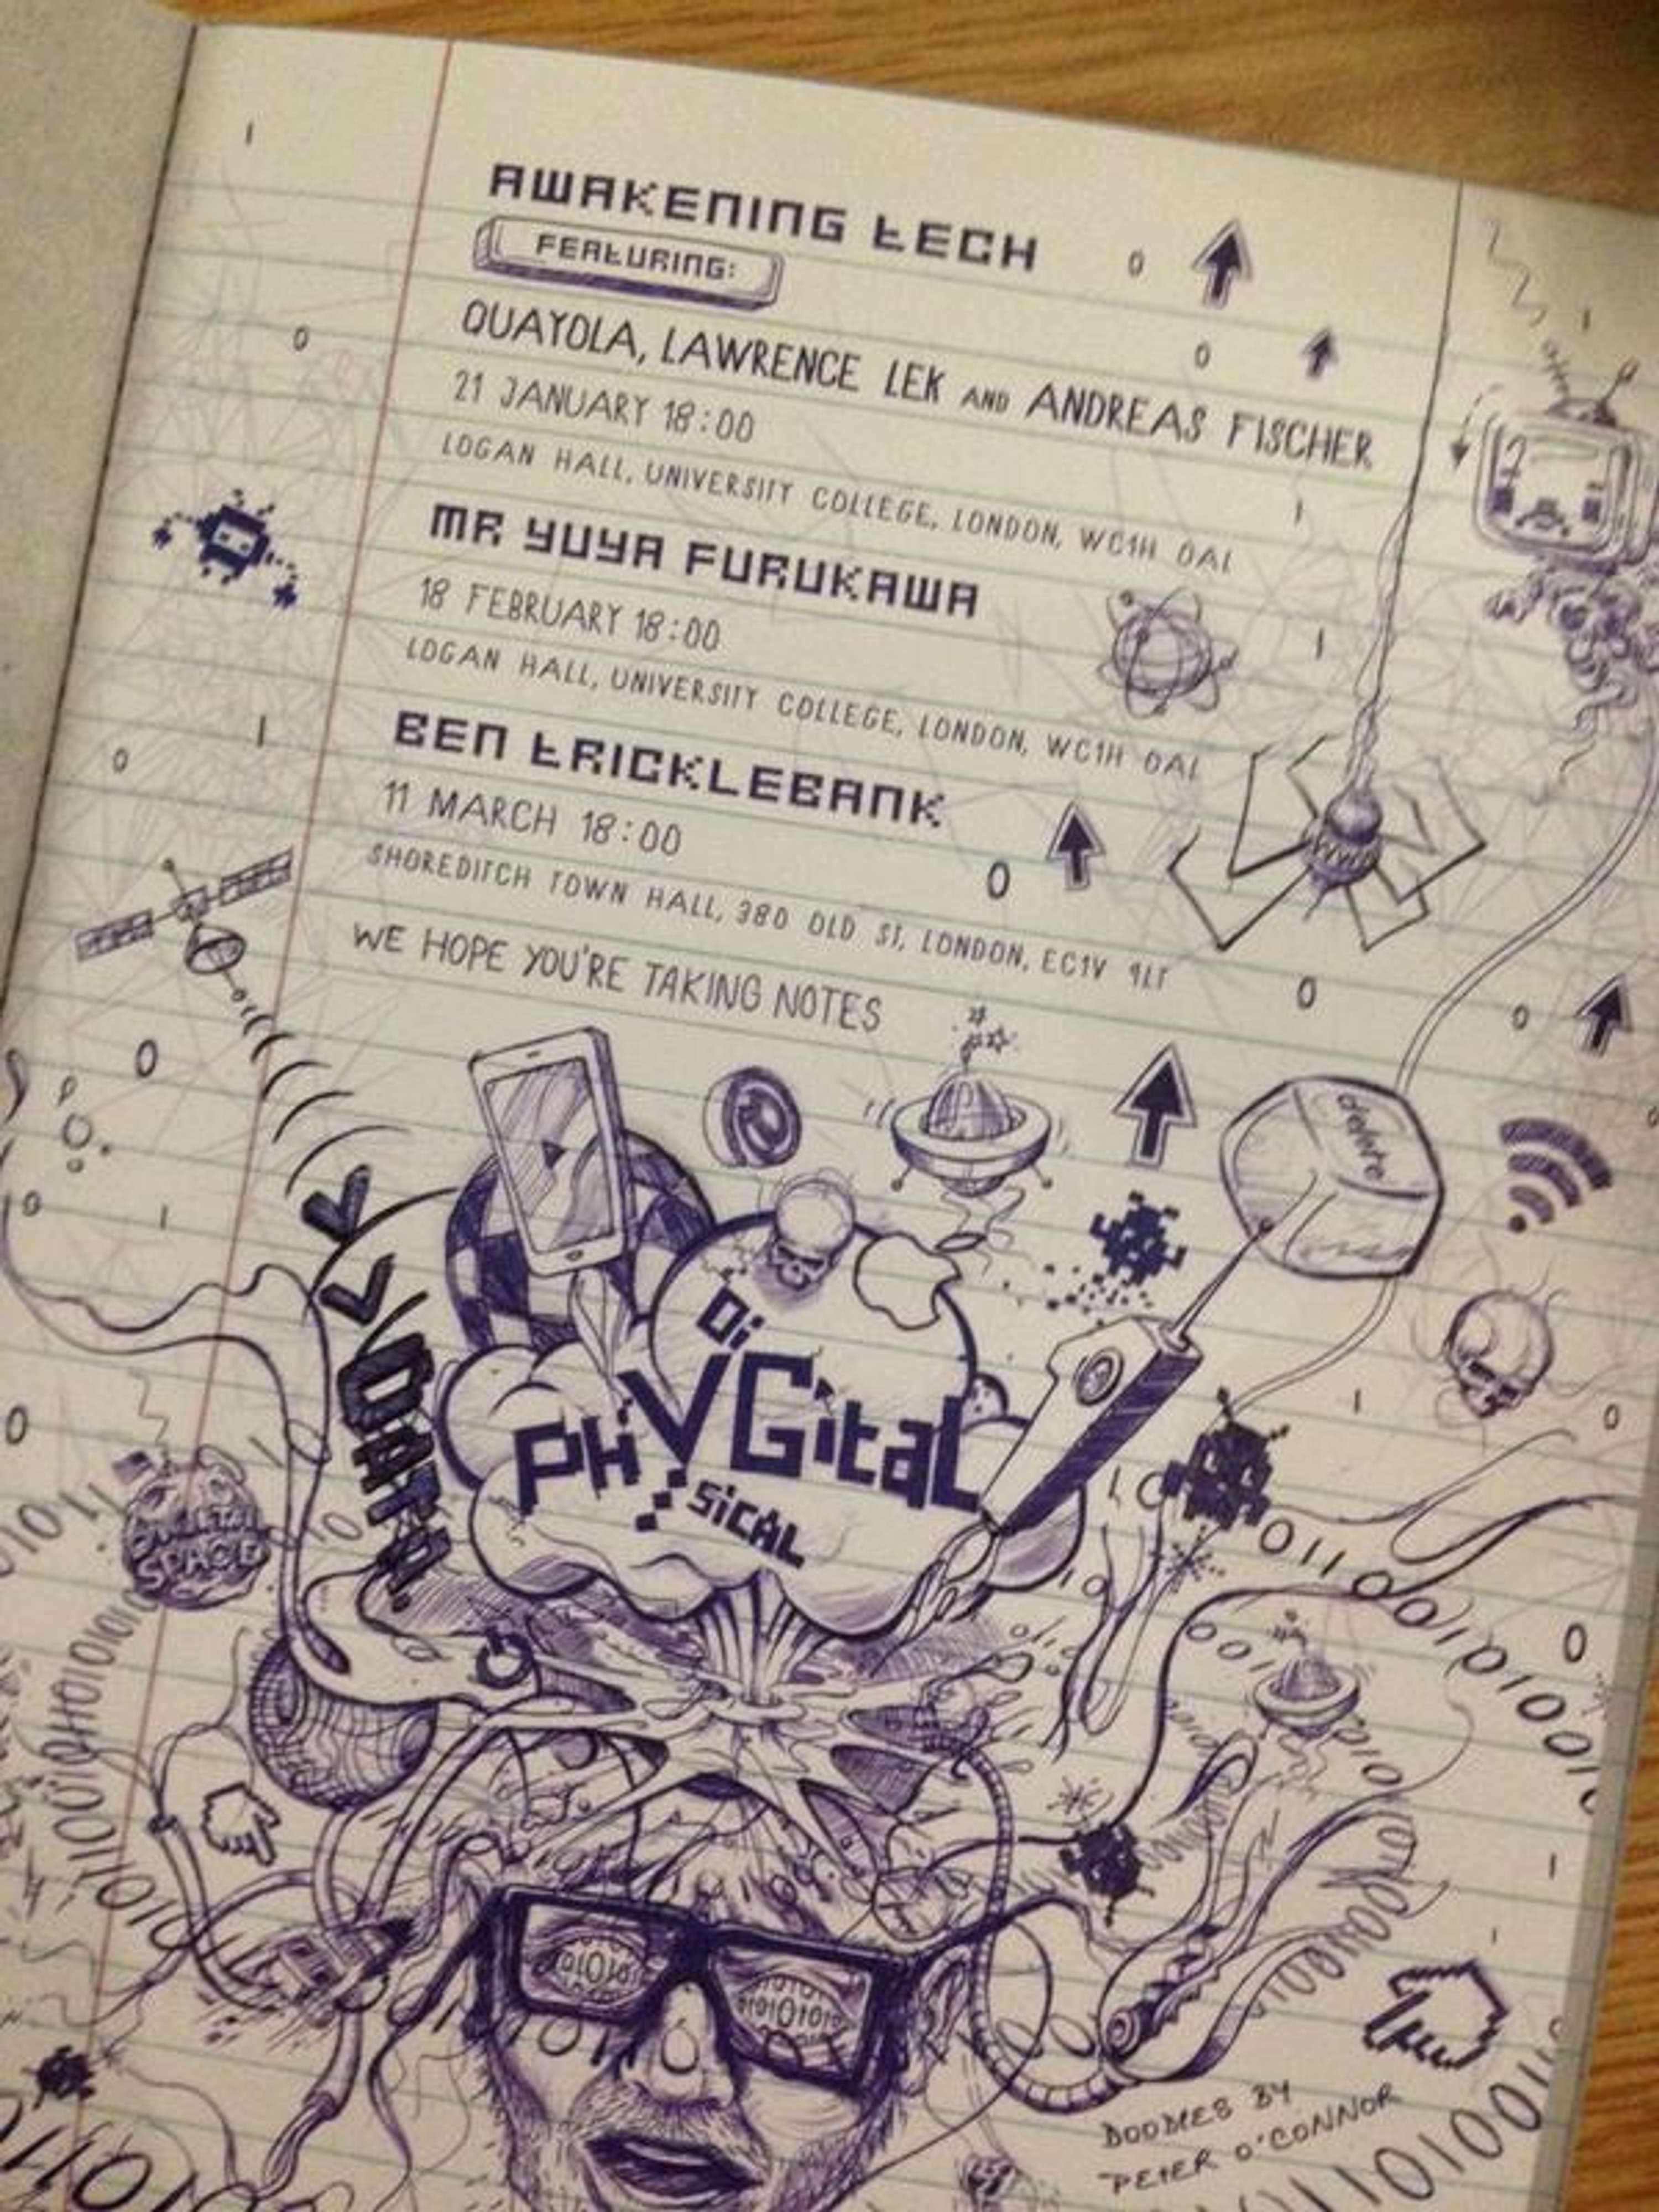 AWAKENING TECH
FEATURING:
QUAYOLA, LAWRENCE LEK AND ANDREAS FISCHER
21 JANUARY 18:00
LOGAN HALL, UNIVERSITY COLLEGE, LONDON, WC1H 0AL
MR YUYA FURUKAWA
18 FEBRUARY 18:00
LOGAN HALL, UNIVERSITY COLLEGE, LONDON, WC1H 0AL
BEN TRICKLEBANK
11 MARCH 18:00
SHOREDITCH TOWN HALL, 380 OLD ST, LONDON, EC1V 9LT
WE HOPE YOU'RE TAKING NOTES
delete
Di
PHYGital
SiCAL
DATA
SPACE
DOODLES BY
PETER O'CONNOR